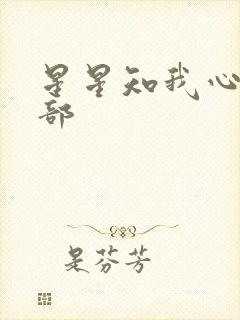 星星知我心
部
是芬芳